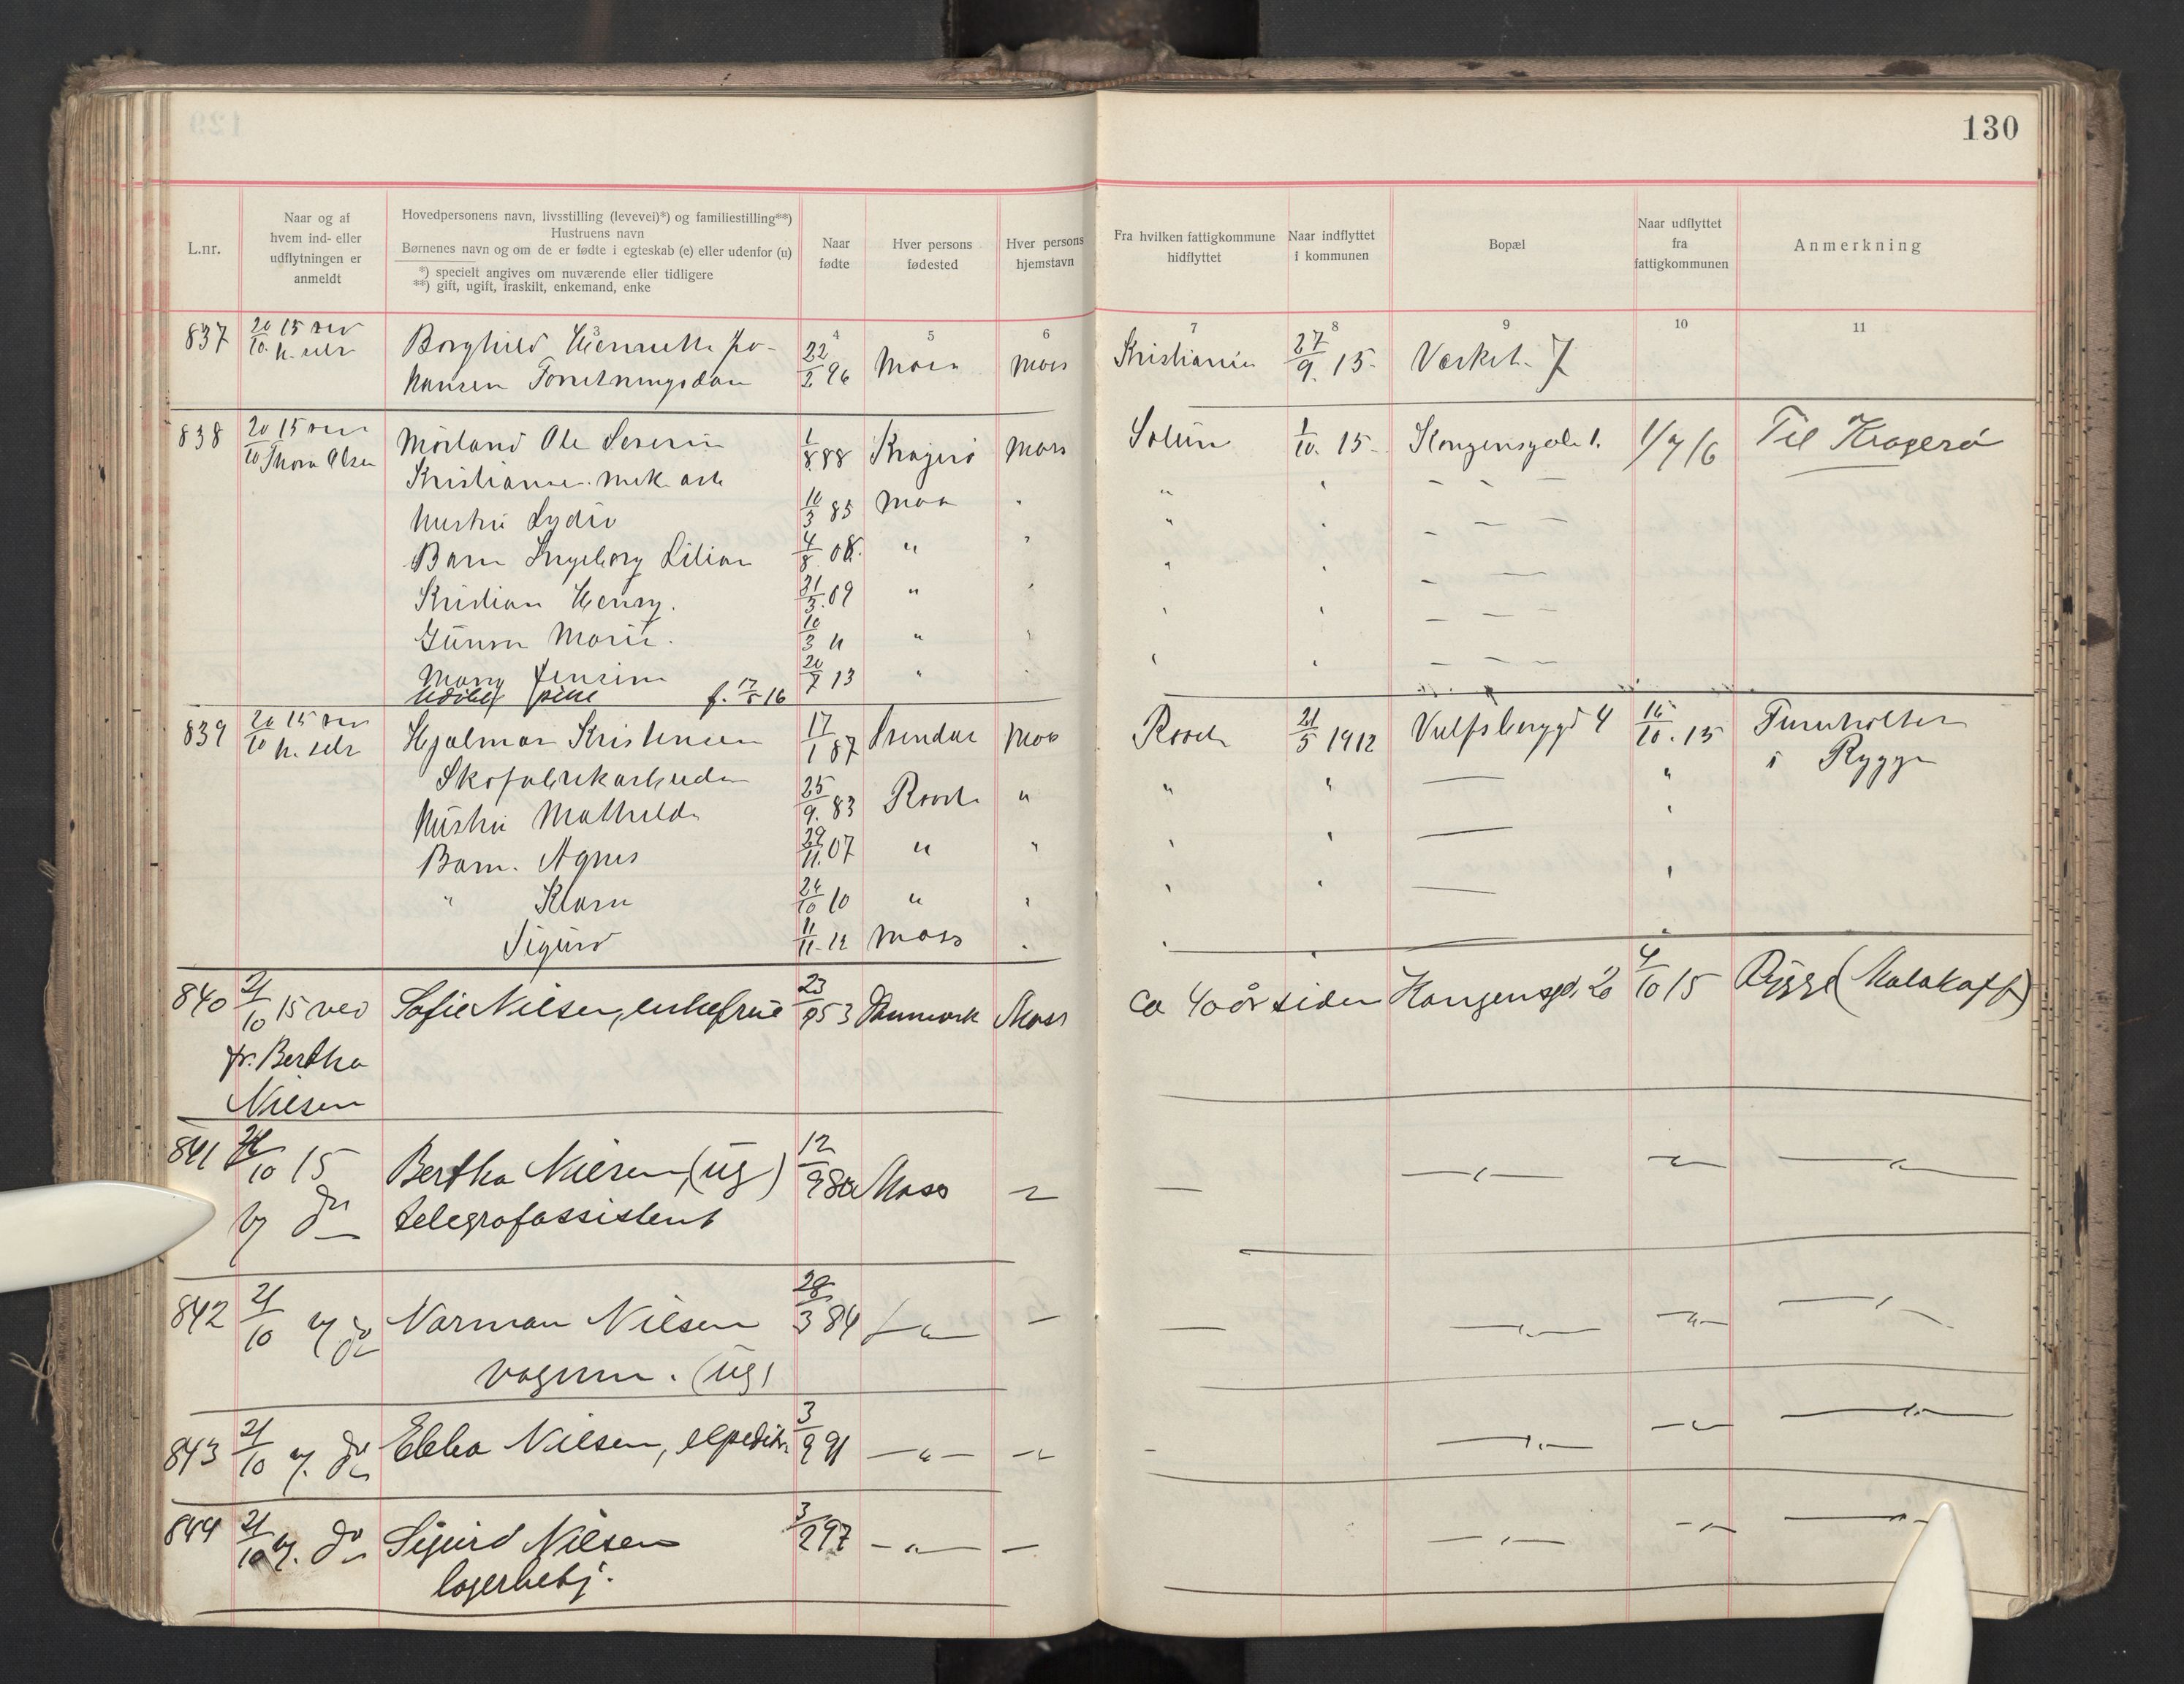 130
L.nr.
Naar og af hvem ind- eller udflytningen er anmeldt
Hovedpersonens navn, livsstilling (levevei)*) og familiestilling**)
Hustruens navn
Børnenes navn og om de er fødte i egteskab (e) eller udenfor (u)
*) specielt angives om nuværende eller tidligere
**) gift, ugift, fraskilt, enkemand, enke
Naar fødte
Hver persons fødested
Hver persons hjemstavn
Fra hvilken fattigkommune hidflyttet
Naar indflyttet i kommunen
Bopæl
Naar udflyttet fra fattigkommunen
Anmerkning
3 4 5 6 7 8 9 10 11
837 20/10 15 ved Borghild Henriette Jo- 22/2 96 Moss Moss Kristiania 27/9 15 Værket 7
h. selv hansen Forretningsdame
838 20/10 15 ved Mørland Ole Severin 1/8 88 Kragerø Moss Solum 1/10 15 Kongensgade 1. 1/7 16 Til Kragerø
Thora Olsen Kristiansen mek. arb.
Hustru Lydia 10/3 85 Moss
Barn Ingeborg Lilian 4/8 08 "
Kristian Henry. 31/3 09 "
Gunvor Marie. 10/3 11 "
Mary Jensine 20/7 13 "
f. 17/5 16
839 20/10 15 ved Hjalmar Kristensen 17/1 87 Moss Raade 21/5 1912 Vulfsberggd 4 15/10 15
h. selv Skofabrikarbeider i Rygge
Hustru Mathilde 25/9 83 Raade " " " "
Barn. Agnes 29/11 07 " "
" Klara 24/10 10 "
Sigurd 11/11 12 Moss
840 21/10 15 ved Sofie Nilsen, enkefrue 23/9 53 Danmark Moss ca 40 år siden Kongensgd. 20 4/10 15 Rygge (Malakoff)
fr. Bertha
Nilsen
841 21/10 15 Bertha Nilsen, (ug) 12/9 80 Moss — " —
av do telegrafassistent
842 21/10 av do Norman Nilsen 28/3 84 — " —
vognm. (ug)
843 21/10 av. do Ebba Nilsen, expeditr. 3/9 91 — " — — " —
844 21/10 av. do Sigurd Nilsen 3/2 97 — " — —
lagerbetj.